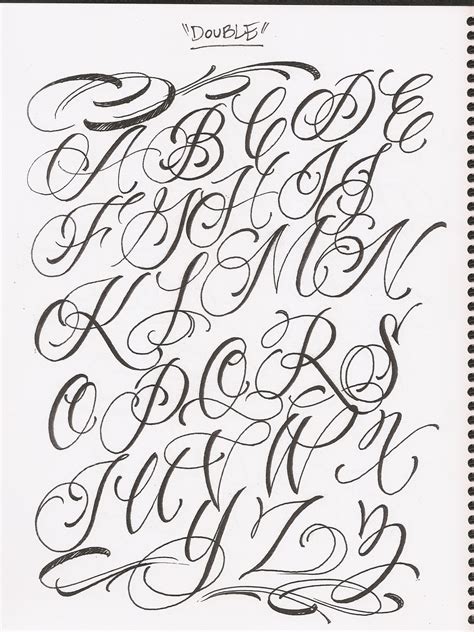 "DOUBLE"
A B C D E
F G H I J
K L M N
O P Q R S
T U V W X
Y Z Z